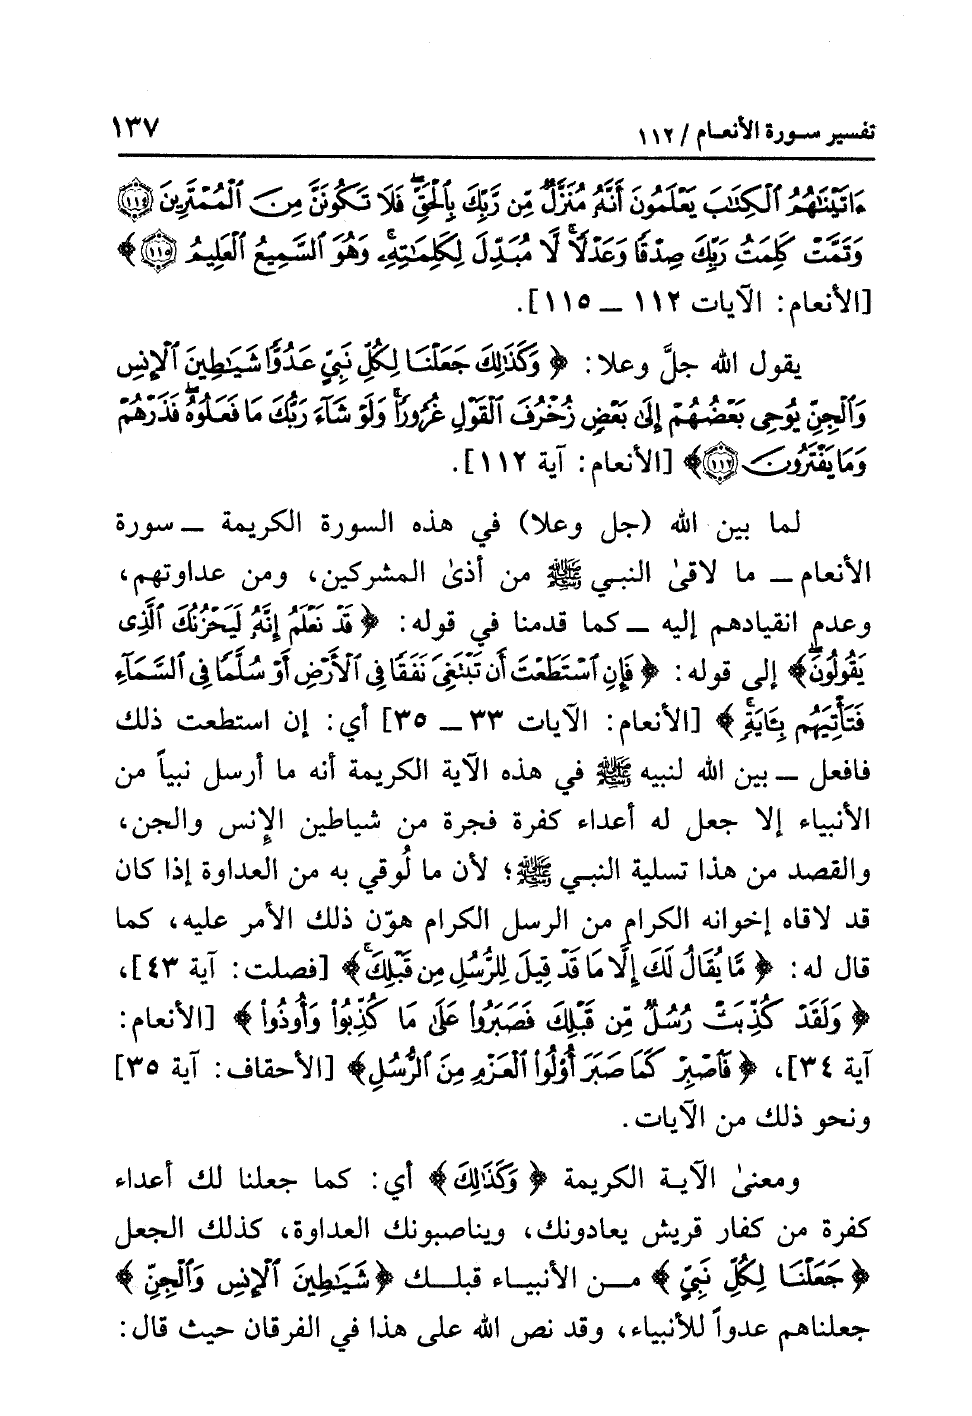 تفسير سورة الأنعام / ١١٢
١٣٧
ءَاتَيْنَٰهُمُ ٱلْكِتَٰبَ يَعْلَمُونَ أَنَّهُۥ مُنَزَّلٌ مِّن رَّبِّكَ بِٱلْحَقِّ ۖ فَلَا تَكُونَنَّ مِنَ ٱلْمُمْتَرِينَ ١١٤
وَتَمَّتْ كَلِمَتُ رَبِّكَ صِدْقًا وَعَدْلًا ۚ لَّا مُبَدِّلَ لِكَلِمَٰتِهِۦ ۚ وَهُوَ ٱلسَّمِيعُ ٱلْعَلِيمُ ١١٥ ﴾
[الأنعام: الآيات ١١٢ ــ ١١٥].
يقول الله جلَّ وعلا: ﴿ وَكَذَٰلِكَ جَعَلْنَا لِكُلِّ نَبِىٍّ عَدُوًّا شَيَٰطِينَ ٱلْإِنسِ
وَٱلْجِنِّ يُوحِى بَعْضُهُمْ إِلَىٰ بَعْضٍ زُخْرُفَ ٱلْقَوْلِ غُرُورًا ۚ وَلَوْ شَآءَ رَبُّكَ مَا فَعَلُوهُ ۖ فَذَرْهُمْ
وَمَا يَفْتَرُونَ ١١٢ ﴾ [الأنعام: آية ١١٢].
لما بين الله (جل وعلا) في هذه السورة الكريمة ــ سورة
الأنعام ــ ما لاقىٰ النبي ﷺ من أذىٰ المشركين، ومن عداوتهم،
وعدم انقيادهم إليه ــ كما قدمنا في قوله: ﴿ قَدْ نَعْلَمُ إِنَّهُۥ لَيَحْزُنُكَ ٱلَّذِى
يَقُولُونَ ۖ ﴾ إلى قوله: ﴿ فَإِنِ ٱسْتَطَعْتَ أَن تَبْتَغِىَ نَفَقًا فِى ٱلْأَرْضِ أَوْ سُلَّمًا فِى ٱلسَّمَآءِ
فَتَأْتِيَهُم بِـَٔايَةٍ ۚ ﴾ [الأنعام: الآيات ٣٣ ــ ٣٥] أي: إن استطعت ذلك
فافعل ــ بين الله لنبيه ﷺ في هذه الآية الكريمة أنه ما أرسل نبياً من
الأنبياء إلا جعل له أعداء كفرة فجرة من شياطين الإنس والجن،
والقصد من هذا تسلية النبي ﷺ؛ لأن ما لُوقي به من العداوة إذا كان
قد لاقاه إخوانه الكرام من الرسل الكرام هوّن ذلك الأمر عليه، كما
قال له: ﴿ مَّا يُقَالُ لَكَ إِلَّا مَا قَدْ قِيلَ لِلرُّسُلِ مِن قَبْلِكَ ۚ ﴾ [فصلت: آية ٤٣]،
﴿ وَلَقَدْ كُذِّبَتْ رُسُلٌ مِّن قَبْلِكَ فَصَبَرُوا۟ عَلَىٰ مَا كُذِّبُوا۟ وَأُوذُوا۟ ﴾ [الأنعام:
آية ٣٤]، ﴿ فَٱصْبِرْ كَمَا صَبَرَ أُو۟لُوا۟ ٱلْعَزْمِ مِنَ ٱلرُّسُلِ ﴾ [الأحقاف: آية ٣٥]
ونحو ذلك من الآيات.
ومعنىٰ الآية الكريمة ﴿ وَكَذَٰلِكَ ﴾ أي: كما جعلنا لك أعداء
كفرة من كفار قريش يعادونك، ويناصبونك العداوة، كذلك الجعل
﴿ جَعَلْنَا لِكُلِّ نَبِىٍّ ﴾ من الأنبياء قبلك ﴿ شَيَٰطِينَ ٱلْإِنسِ وَٱلْجِنِّ ﴾
جعلناهم عدواً للأنبياء، وقد نص الله على هذا في الفرقان حيث قال: